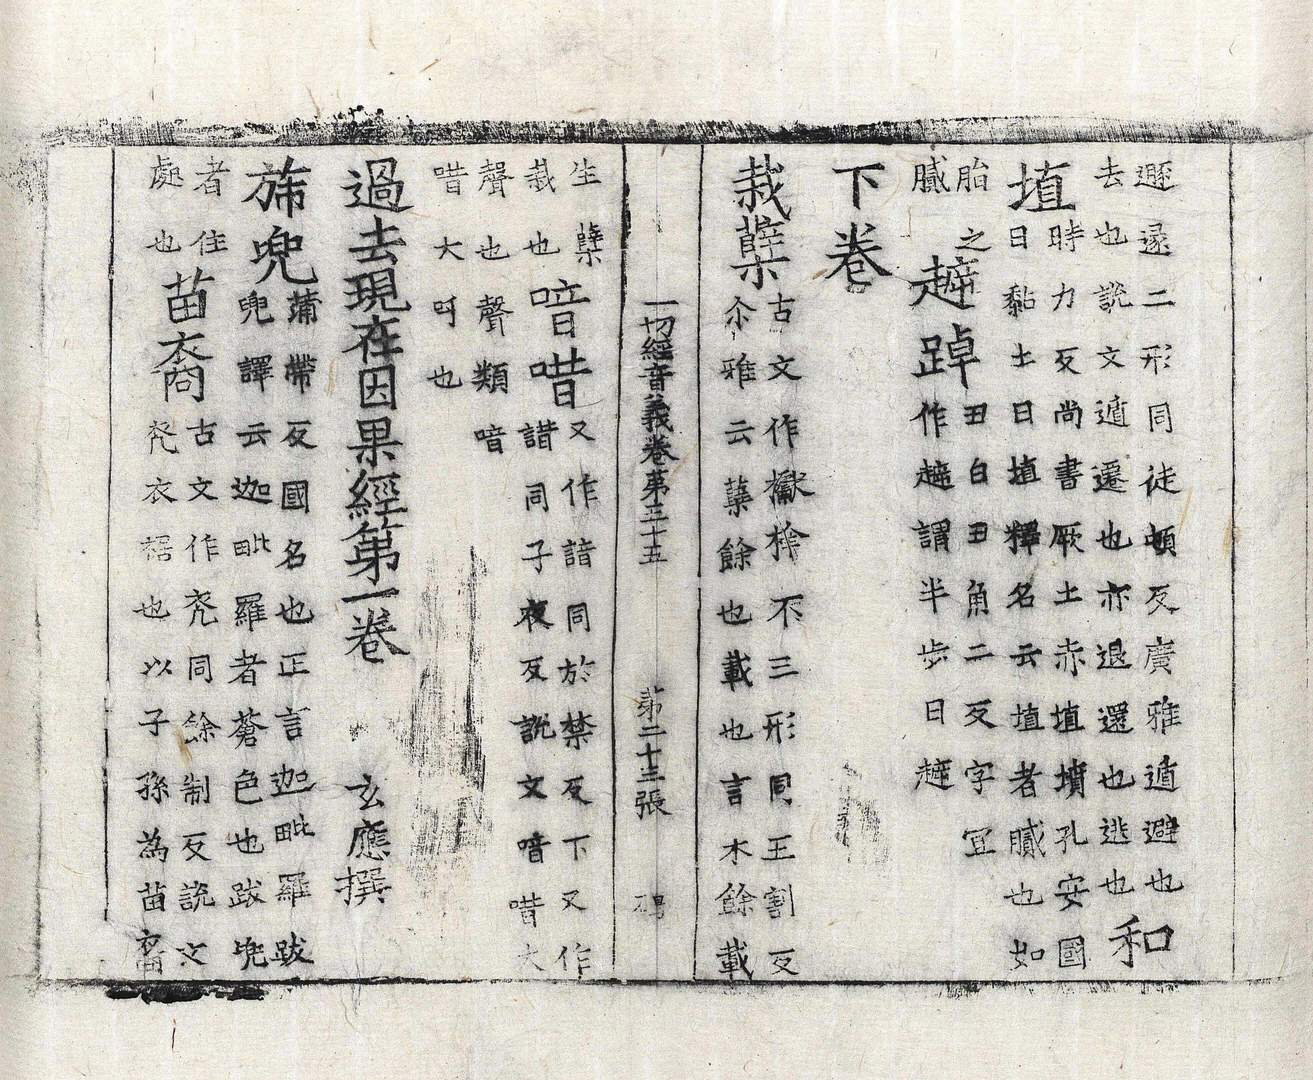 遯遂二形同徒頓反廣雅遁避也
去也說文遁遷也亦退還也逃也和
埴時力反尚書厥土赤埴墳孔安國
曰黏土曰埴釋名云埴者膩也如
胎之
膩
趌踔丑白丑角二反字冝
作趌謂半步曰趌
下卷
栽蘖古文作櫱栓不三形同王割反
尒雅云蘖餘也載也言木餘載
一切經音義卷第三十五 第二十三張
生蘖
栽也
喑唶又作諳同於禁反下又作
譜同子夜反說文喑唶大
聲也聲類喑
唶大呵也
過去現在因果經第一卷 玄應撰
旆兜蒲帶反國名也正言迦毗羅跋
兜譯云迦毗羅者蒼色也跋兜
者住
處也
苗裔古文作𠧹同餘制反說文
裔衣裾也以子孫為苗裔